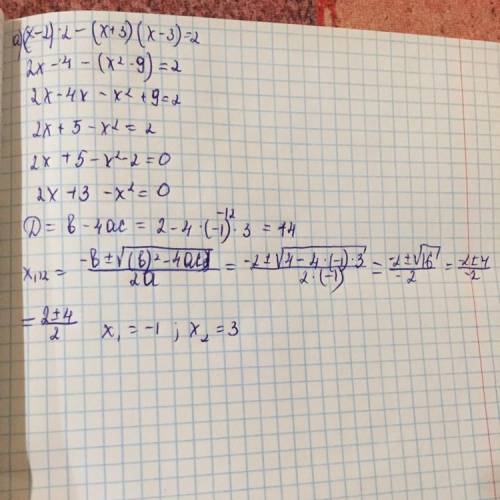 а) (x-2)·2-(x+3)(x-3)=2
2x-4-(x²-9)=2
2x-4x-x²+9=2
2x+5-x²=2
2x+5-x²-2=0
2x+3-x²=0
D=b-4ac=2-4·(-1)·3=14
-12
x₁,₂=\frac{-b±\sqrt{(b)²-4ac}}{2a}=\frac{-2±\sqrt{4-4·(-1)·3}}{2·(-1)}=\frac{-2±\sqrt{16}}{-2}=\frac{-2±4}{-2}
=\frac{2±4}{2} x₁=-1 ; x₂=3